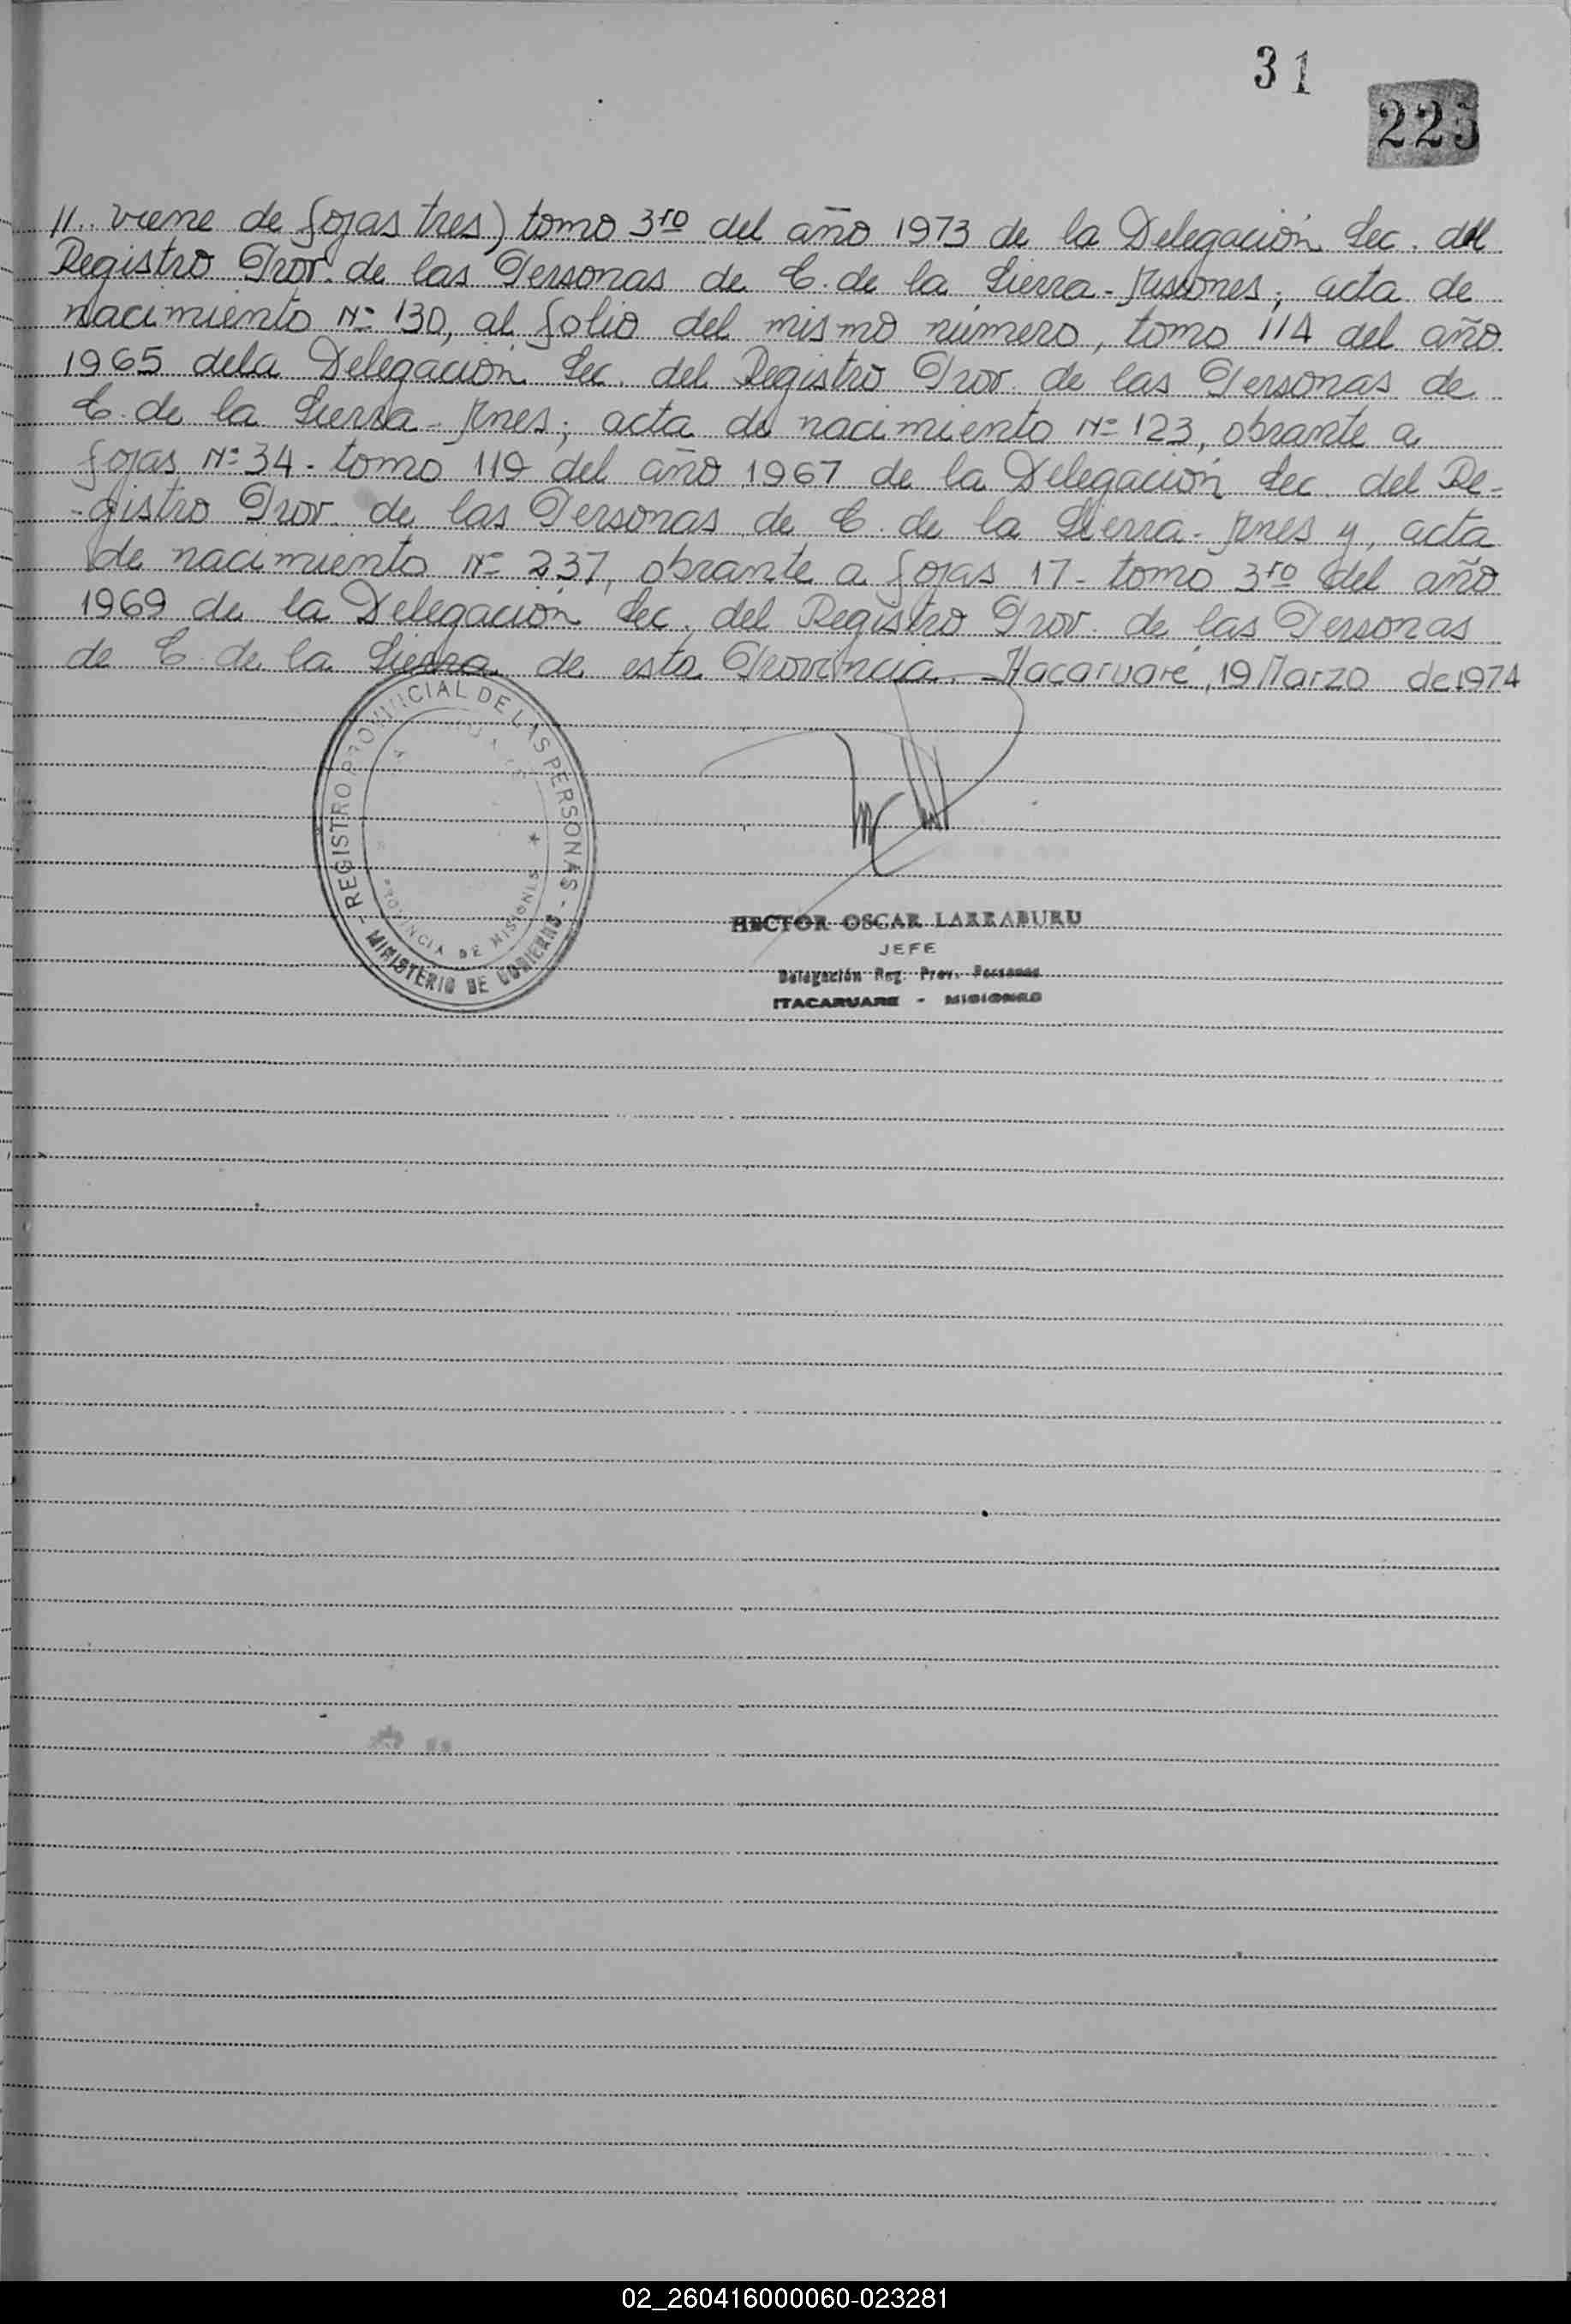 31
225
//.. viene de fojas tres) tomo 3ro del año 1973 de la Delegación Sec. del
Registro Prov. de las Personas de C. de la Sierra - Misiones; acta de
nacimiento Nº 130, al folio del mismo número, tomo 114 del año
1965 dela Delegación Sec. del Registro Prov. de las Personas de
C. de la Sierra - Mnes; acta de nacimiento Nº 123, obrante a
fojas Nº 34 - tomo 119 del año 1967 de la Delegación Sec. del Re-
-gistro Prov. de las Personas de C. de la Sierra - Mnes y, acta
de nacimiento Nº 237, obrante a fojas 17 - tomo 3ro del año
1969 de la Delegación Sec. del Registro Prov. de las Personas
de C. de la Sierra de esta Provincia. - Itacaruaré, 19 Marzo de 1974
- REGISTRO PROVINCIAL DE LAS PERSONAS -
MINISTERIO DE GOBIERNO
PROVINCIA DE MISIONES *
HECTOR OSCAR LARRABURU
JEFE
Delegación Reg. Prov. Personas
ITACARUARE - MISIONES
02_260416000060-023281